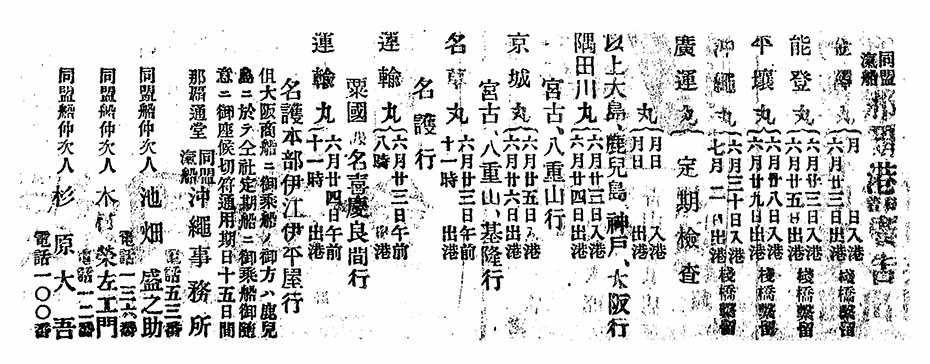 同盟
滊船 那覇港發着
月 日入港
六月廿三日出港 棧橋繫留
能登丸 六月廿三日入港
六月廿五日出港 棧橋繫留
平壤丸 六月廿八日入港
六月廿九日出港 棧橋繫留
沖繩丸 六月三十日入港
七月二日出港 棧橋繫留
廣運丸 定期檢査
丸 月日入港
月日出港
以上大島、鹿兒島、神戸、大阪行
隅田川丸 六月廿三日入港
六月廿四日出港
宮古、八重山行
京城丸 六月廿五日入港
六月廿六日出港
宮古、八重山、基隆行
名草丸 六月廿三日午前
十一時出港
名護行
運輸丸 六月廿三日午前
八時出港
粟國及名喜慶良間行
運輸丸 六月廿四日午前
十一時出港
名護本部伊江伊平屋行
但大阪商船ニ御乘船ノ御方ハ鹿兒
島ニ於テ仝社定期船ニ御乘船御隨
意ニ御座候切符通用期日十五日間
那覇通堂 同盟
滊船 沖繩事務所
電話五三番
同盟船仲次人 池畑盛之助
電話一三六番
同盟船仲次人 木村榮左工門
電話一一二番
同盟船仲次人 杉原大吾
電話一〇〇番